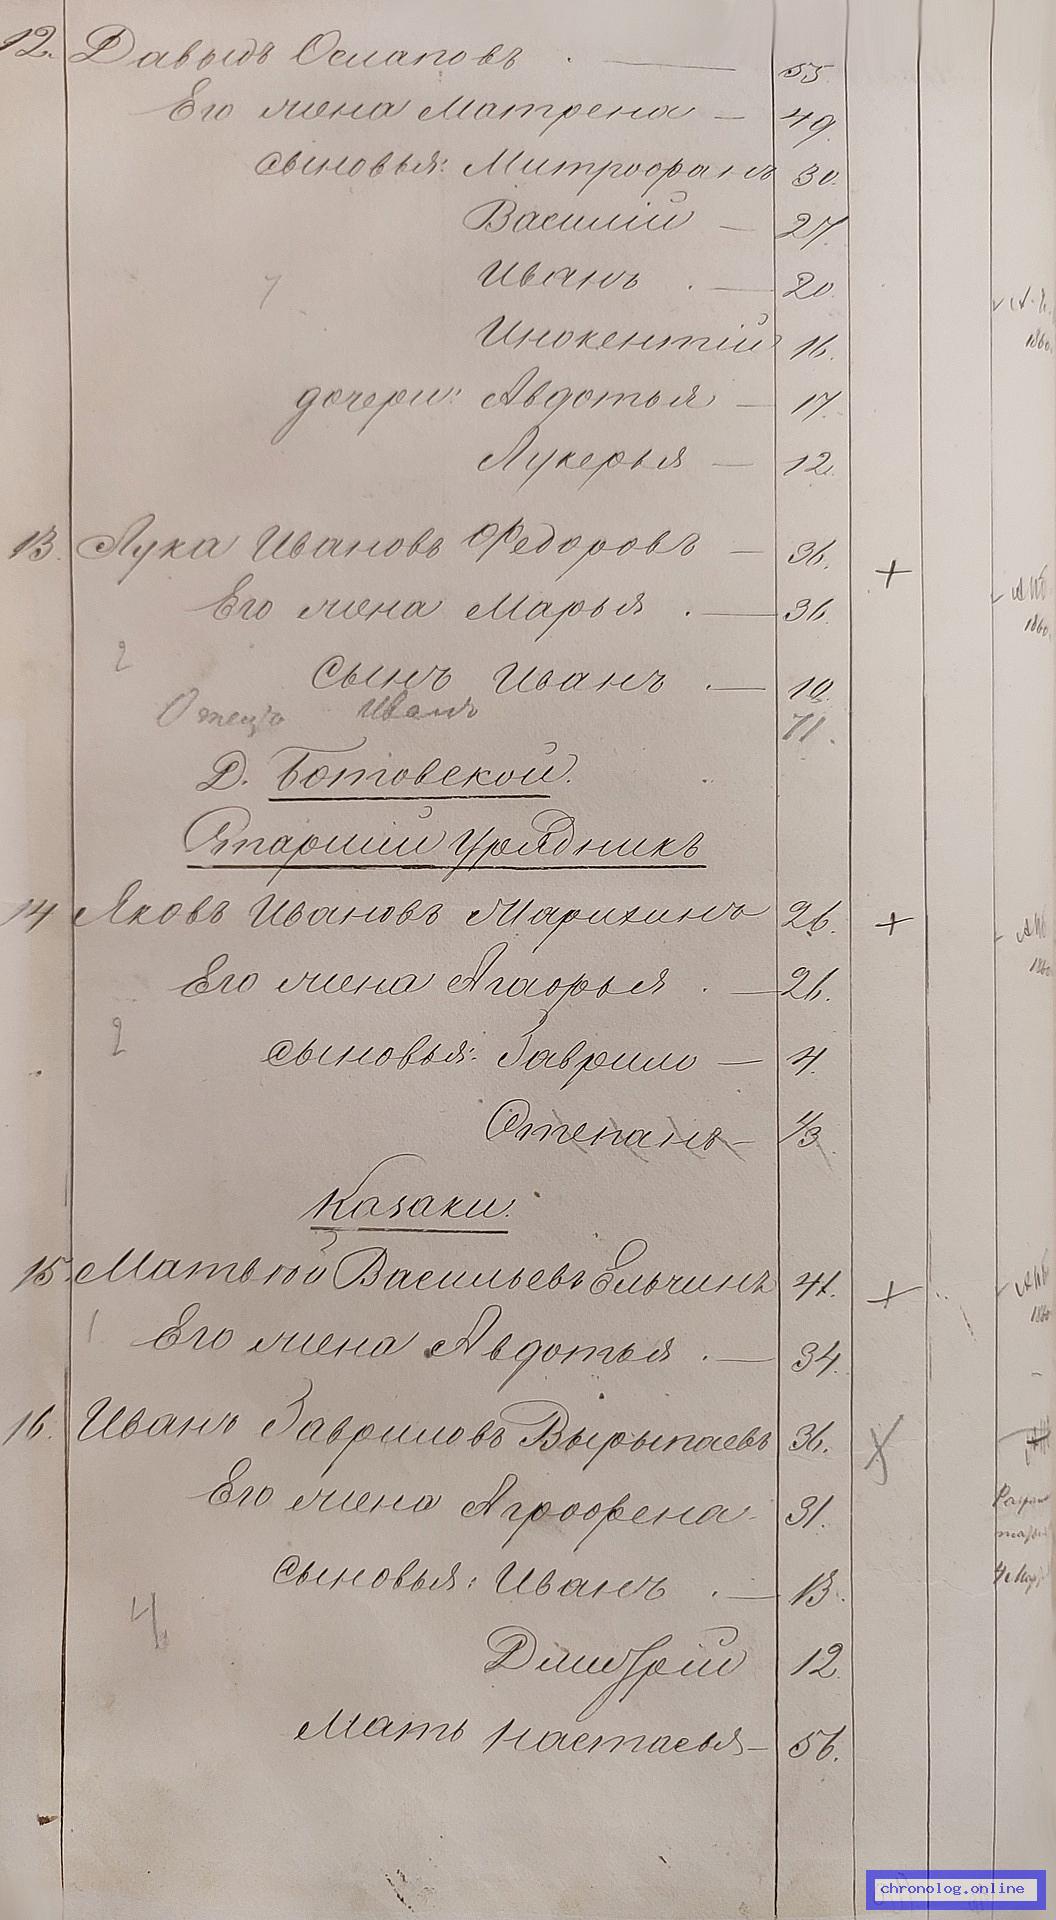 12. Давыдъ Ослаповъ . — 55.
Его жена Матрена — 49.
сыновья: Митрофанъ 30.
Василій — 27.
Иванъ . — 20.
7
Инокентій 16.
дочери: Авдотья — 17.
Лукерья — 12.
13. Лука Ивановъ Федоровъ — 36. +
Его жена Марья . — 36.
2
сынъ Иванъ . — 10.
Отецъ Иванъ 71.
Д. Ботовской.
Старшій Урядникъ
14 Яковъ Ивановъ Марихинъ 26. +
Его жена Агафья . — 26.
2
сыновья: Гаврило — 4.
Степанъ — 1/3.
Казаки.
15. Матвѣй Васильевъ Ельчинъ 41. +
1 Его жена Авдотья . — 34.
16. Иванъ Гавриловъ Вырыпаевъ 36.
Его жена Агрофена - 31.
сыновья: Иванъ . — 13.
4
Дмитрій 12
Мать Настасья — 56.
1860
1860
1860
1860
chronolog.online